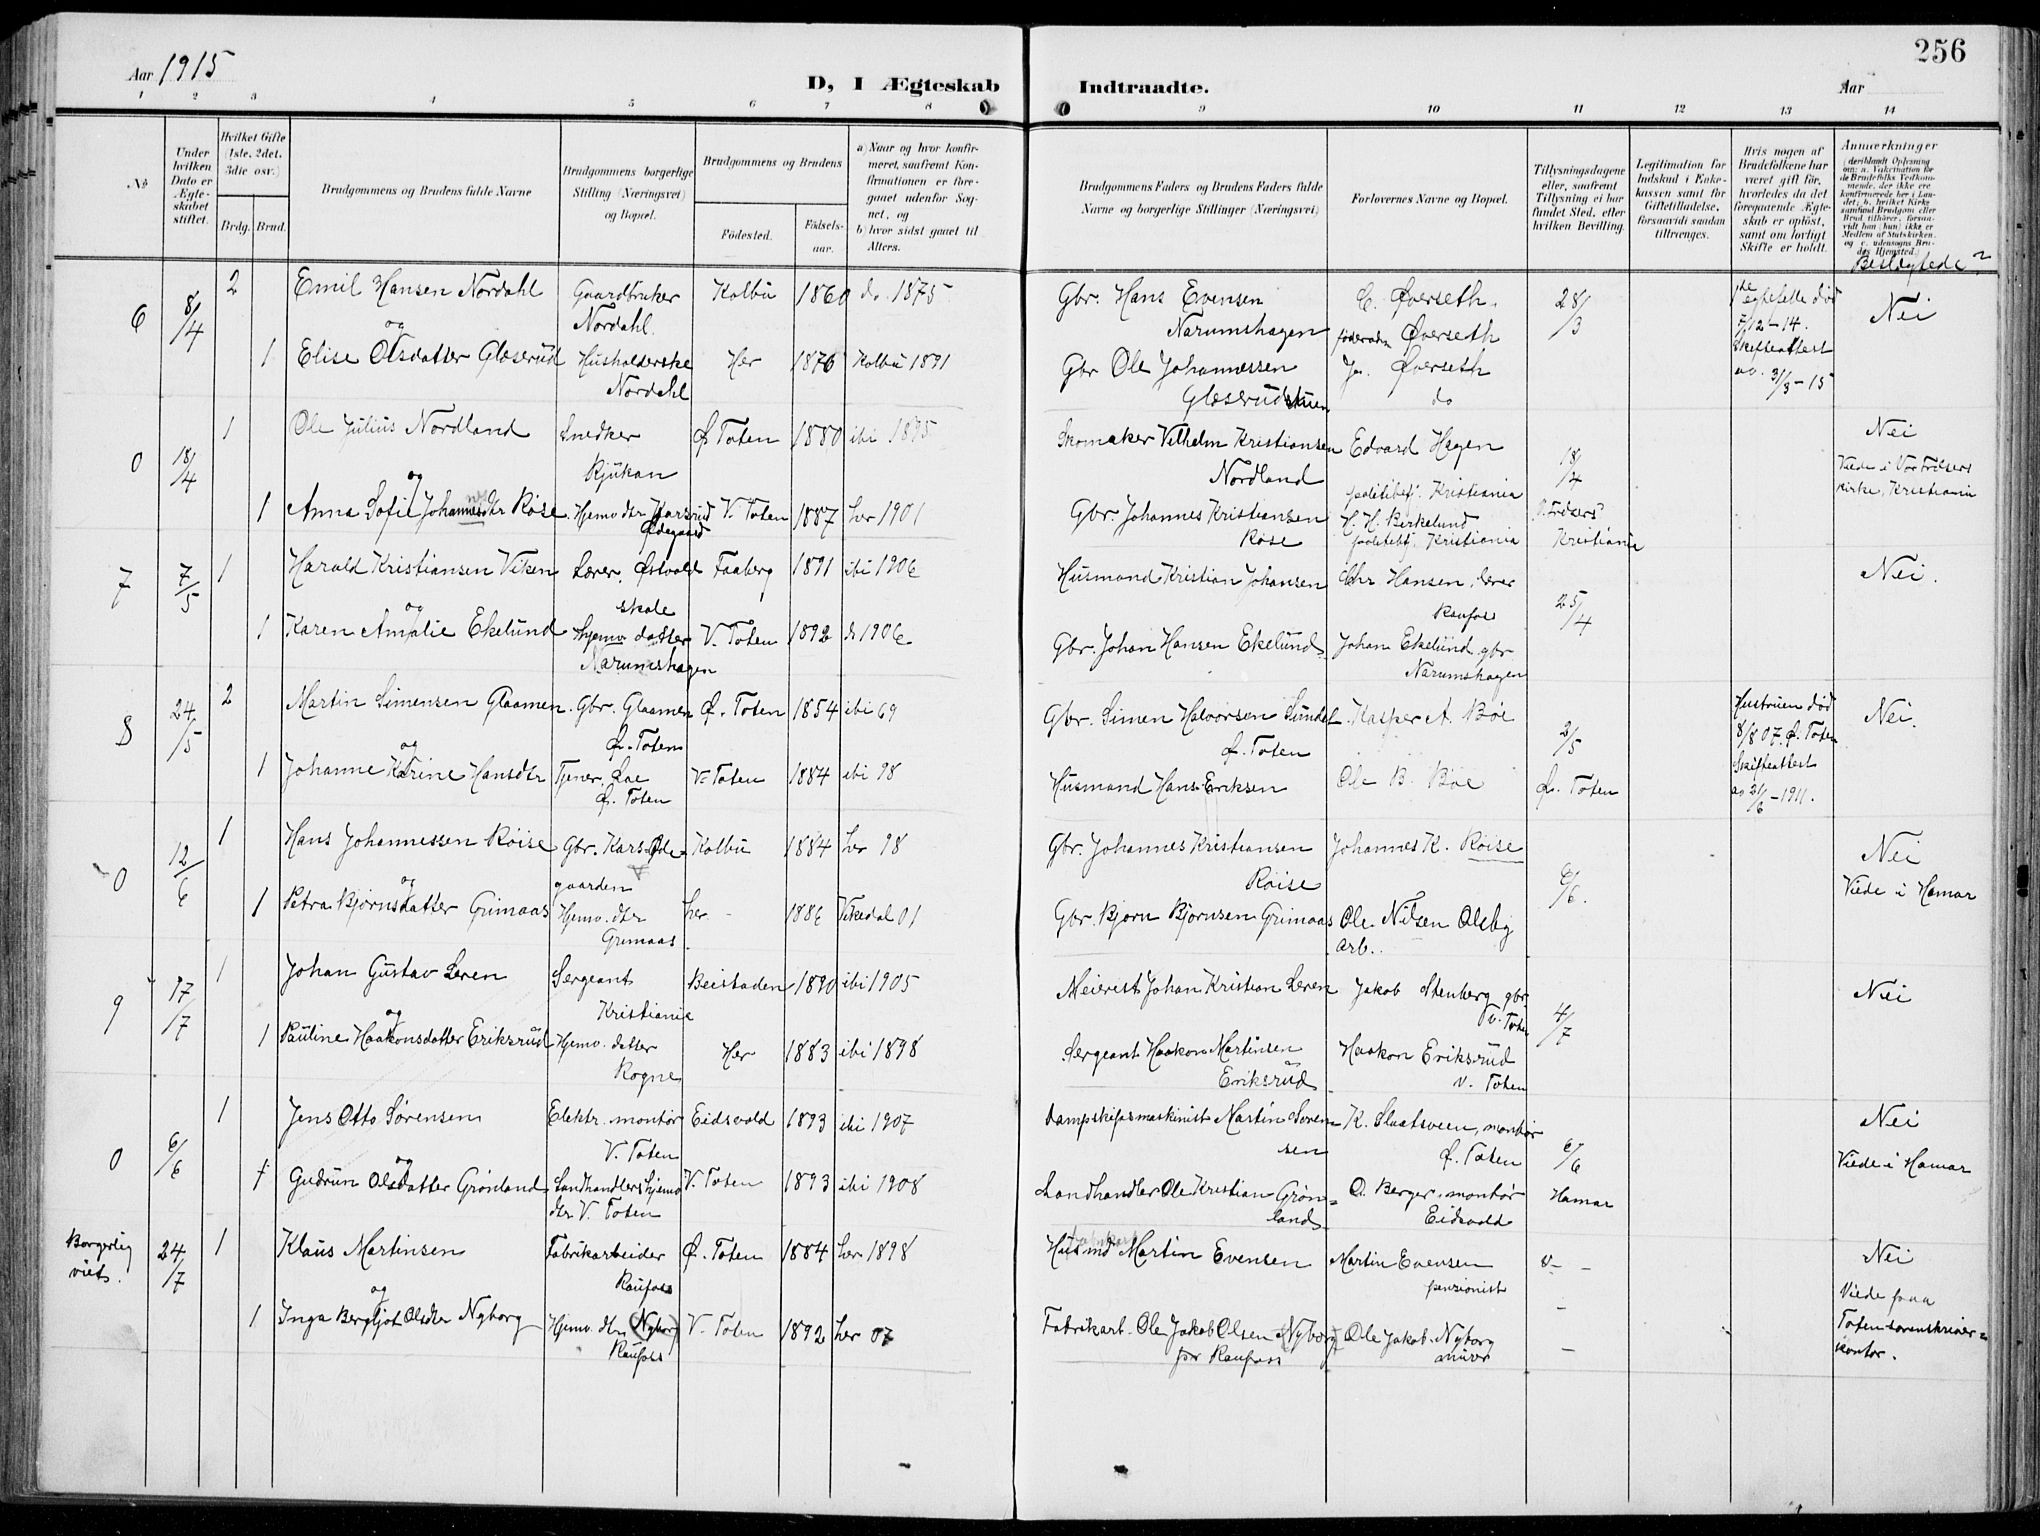 Aar 1915
D, I Ægteskab Indtraadte.
Aar
256
1 2 3 4 5 6 7 8 9 10 11 12 13 14
No
Under hvilken Dato er Ægteskabet stiftet.
Hvilket Gifte (1ste, 2det, 3die osv.)
Brdg. Brud.
Brudgommens og Brudens fulde Navne
Brudgommens borgerlige Stilling (Næringsvei) og Bopæl.
Brudgommens og Brudens
Fødested.
Fødselsaar.
a) Naar og hvor konfirmeret, saafremt Konfirmationen er foregaaet udenfor Sognet, og
b) hvor sidst gaaet til Alters.
Brudgommens Faders og Brudens Faders fulde Navne og borgerlige Stillinger (Næringsvei)
Forlovernes Navne og Bopæl.
Tillysningsdagene eller, saafremt Tillysning ei har fundet Sted, efter hvilken Bevilling.
Legitimation for Indskud i Enkekassen samt for Giftetilladelse, forsaavidt saadan tiltrænges.
Hvis nogen af Brudefolkene har været gift før, hvorledes da det foregaaende Ægteskab er opløst, samt om lovligt Skifte er holdt.
Anmærkninger
Beslægtede?
6 8/4 2 Emil Hansen Nordahl Gaardbruker Nordahl. Kolbu 1860 do. 1875 Gbr. Hans Evensen Narumshagen C. Øverseth. føderaadm Øverseth 28/3 1ste egtefelle død 7/12-14. Skifteattest av. 31/3-15 Nei
og
1 Elise Olsdatter Glæserud Husholderske Nordahl Her 1876 Kolbu 1891 Gbr Ole Johannessen Glæserudstuen Jo. Øverseth do
0 18/4 1 Ole Julius Nordland Snedker Rjukan Ø Toten 1880 ibi 1895 Skomaker Vilhelm Kristiansen Nordland Edvard Hagen politibetj. Kristiania 18/4 Nei
Viede i Vor Frelsers kirke, Kristiania
og
1 Anna Sofie Johannesdtr Røise. Hjemv dtr Karsrud Ødegaard V. Toten 1887 her 1901 Gbr. Johannes Kristiansen Røise H. H. Birkelund politibtj. Kristiania V. Frelsers Kristiania
7 7/5 1 Harald Kristiansen Viken Lærer, Østvold skole Faaberg 1891 ibi 1906 Husmand Kristian Johansen Chr Hansen, lærer Raufoss 25/4 Nei.
og
1 Karen Amalie Ekelund Hjemv. datter Narumshagen V. Toten 1892 do 1906 Gbr. Johan Hansen Ekelund. Johan Ekelund gbr Narumshagen
8 24/5 2 Martin Simensen Glaamen. Gbr. Glaamen Ø. Toten Ø. Toten 1854 ibi 69 Gbr. Simen Halvorsen Sundet Ø. Toten Kasper A. Bøe 2/5 Hustruen død 8/8 07. Ø. Toten Skifteattest av 21/6-1911. Nei.
og
1 Johanne Katrine Hansdtr Tjener, Loe Ø. Toten V. Toten 1884 ibi 98 Husmand Hans Eriksen Ole B. Bøe Ø. Toten
0 12/6 1 Hans Johannessen Røise Gbr. Kars Ødegaarden Kolbu 1884 her 98 Gbr. Johannes Kristiansen Røise Johannes K. Røise 6/6. Nei
Viede i Hamar
og
1 Petra Bjørnsdatter Grimaas Hjemv. dtr Grimaas. her 1886 Vikedal 01 Gbr. Bjørn Bjørnsen Grimaas Ole Nilsen Olsby Arb.
9 17/7 1 Johan Gustav Leren Sergeant Kristiania Beistaden 1890 ibi 1905 Meierist Johan Kristian Leren Jakob Stenberg gbr. V. Toten 4/7 Nei
og
1 Pauline Haakonsdatter Eriksrud Hjemv. datter Rogne Her 1883 ibi 1898 Sergeant Haakon Martinsen Eriksrud Haakon Eriksrud V. Toten
0 6/6 1 Jens Otto Sørensen Elektr. montør V. Toten Eidsvold 1893 ibi 1907 Dampskipsmaskinist Martin Sørensen K. Slaatsveen, montør Ø. Toten 6/6 Nei
Viede i Hamar
og
1 Gudrun Olsdatter Grønland Landhandler hjemv dtr V. Toten V. Toten 1893 ibi 1908 Landhandler Ole Kristian Grønland O. Berger, montør Eidsvold Hamar
Borgerlig viet. 24/7 1 Klaus Martinsen Fabrikarbeider Raufoss Ø. Toten 1884 her 1898 Husmd Martin Evensen Martin Evensen pensionist Nei
Viede paa Toten sorenskriverkontor.
og
1 Inga Bergljot Olsdtr Nyborg Hjemv. dtr (Nyborg) Raufoss V. Toten 1892 her 07 Fabrikarb. Ole Jakob Olsen (Nyborg) pr Raufoss Ole Jakob Nyborg murer